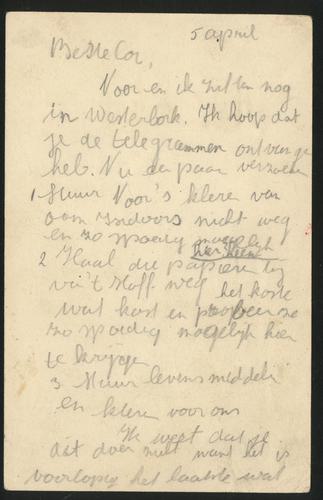 5 april
Beste Cor,
Noor en ik zitten nog
in Westerbork. Ik hoop dat
je de telegrammen ontvange
heb. Nu een paar verzoeken
1 Stuur Noor's kleren van
oom Isidoors niet weg
en zo spoedig mogelijk
hier heen
2 Haal die papieren bij
v/d 't Hoff weg het koste
wat kost en probeer ze
zo spoedig mogelijk hier
te krijgen
3 Stuur levensmiddele
en kleren voor ons
Ik weet dat je
dit doen zult want het is
voorlopig het laatste wat